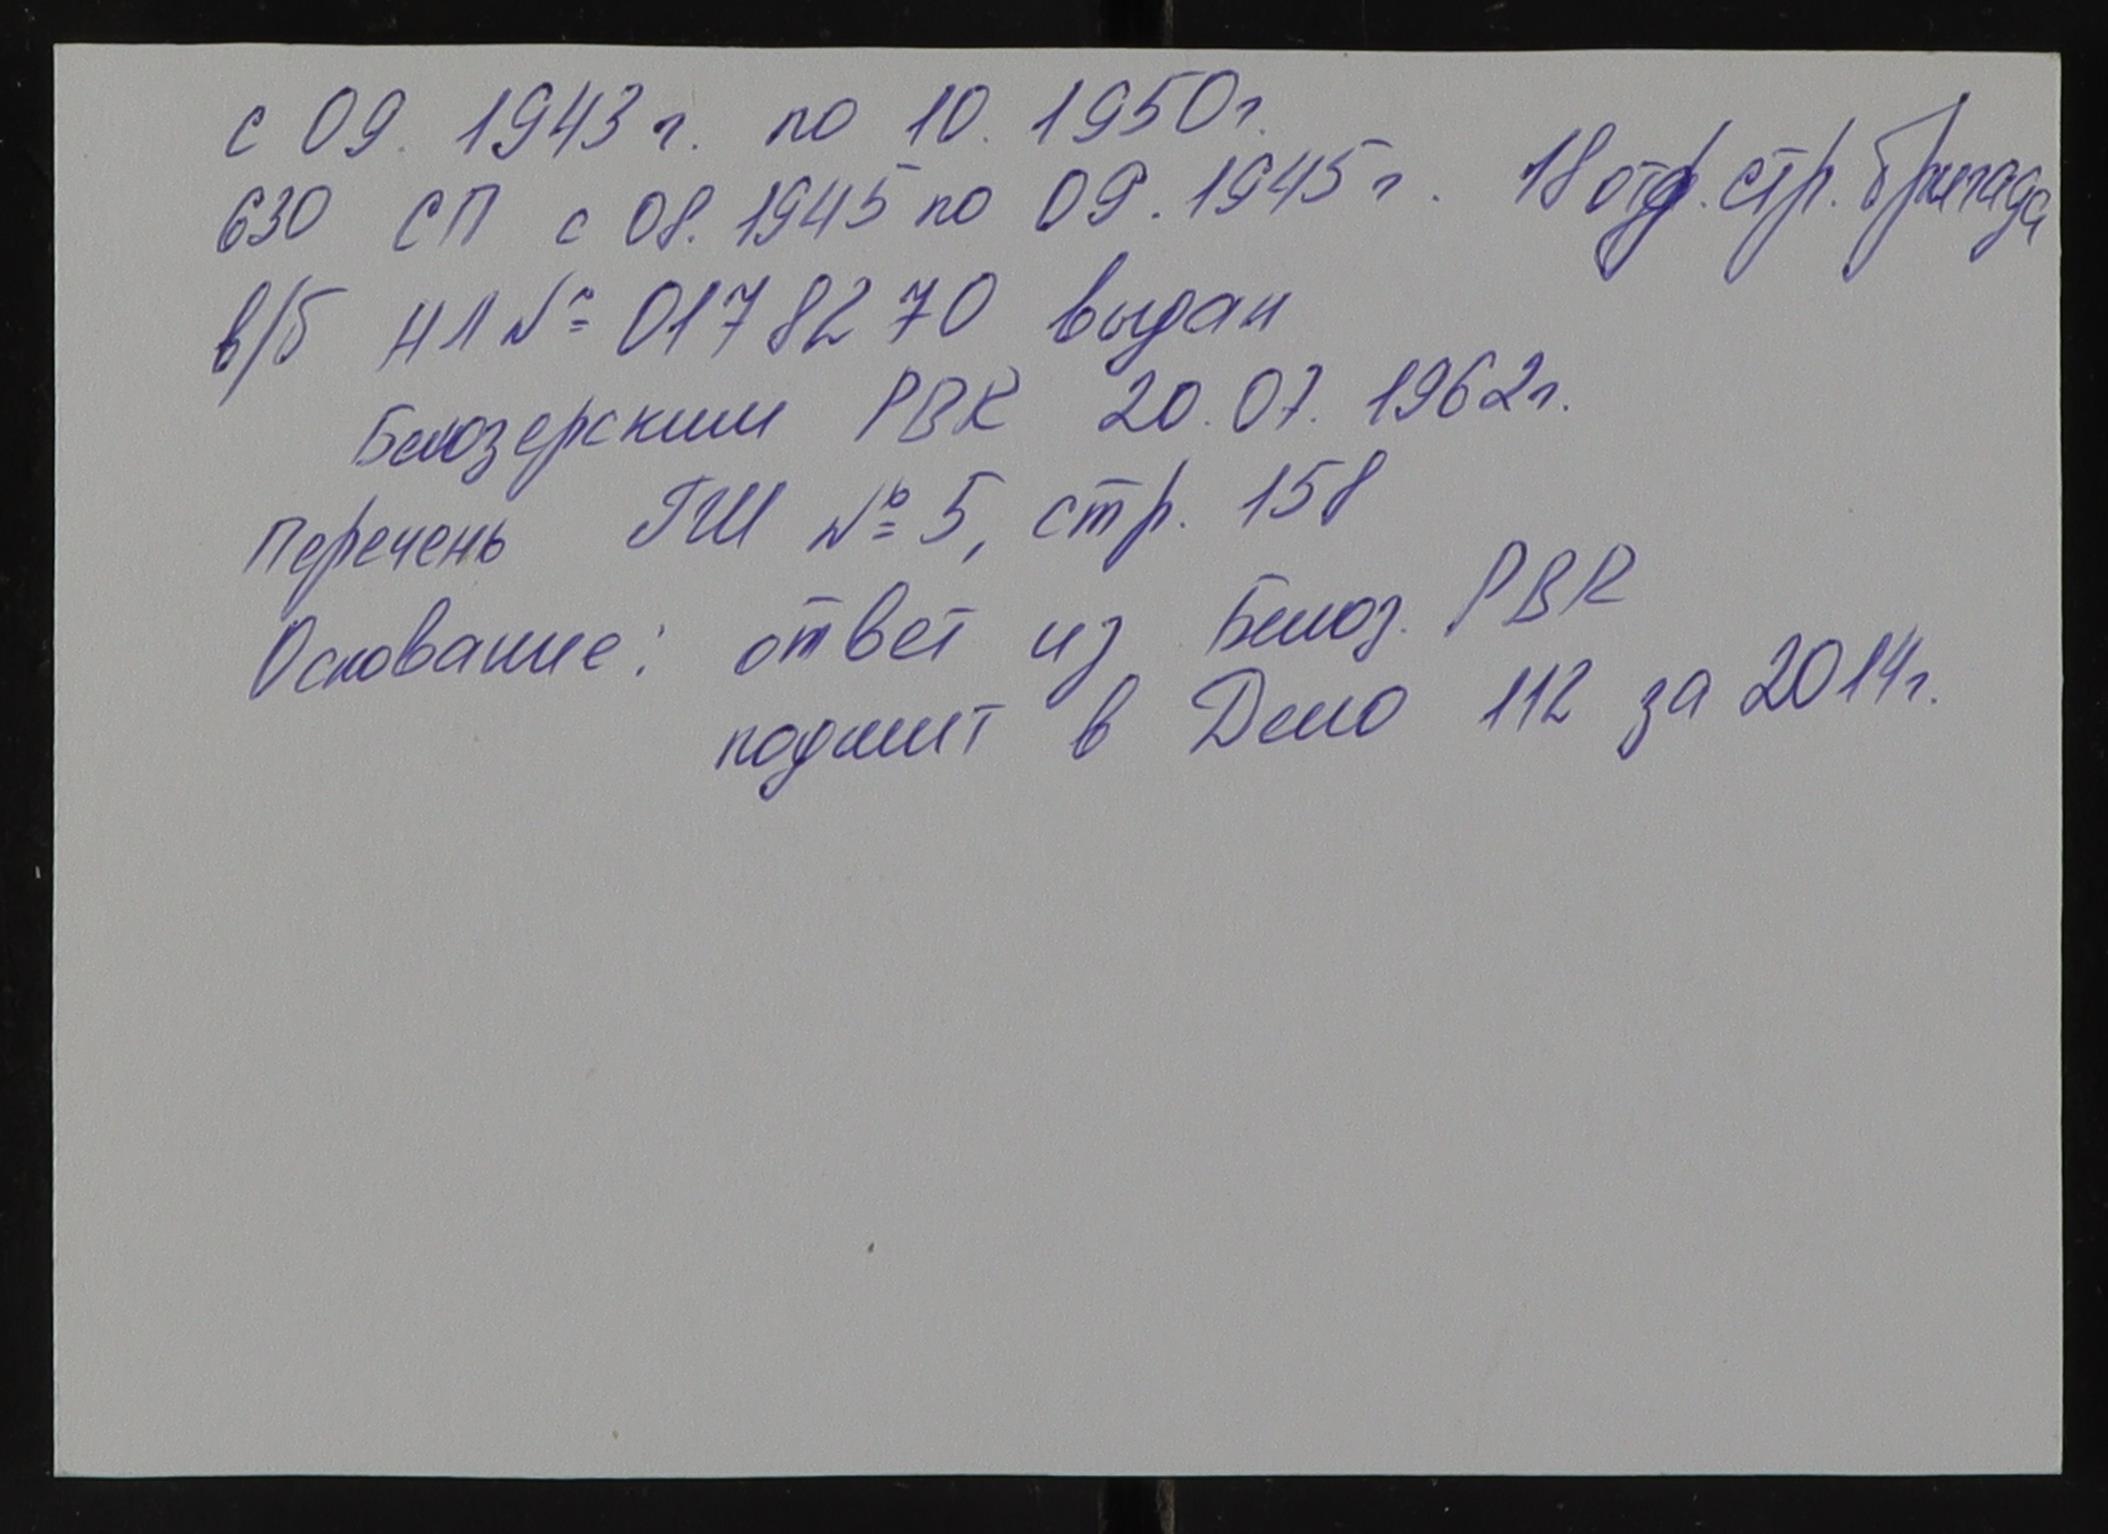 с 09. 1943 г. по 10. 1950г.
630 СП с 08. 1945 по 09. 1945 г. 18 отд. стр. бригада
в/б НЛ № 0178270 выдан
Белозерским РВК 20.07. 1962г.
Перечень ГШ № 5, стр. 158
Основание: ответ из Белоз. РВК
подшит в Дело 112 за 2014г.